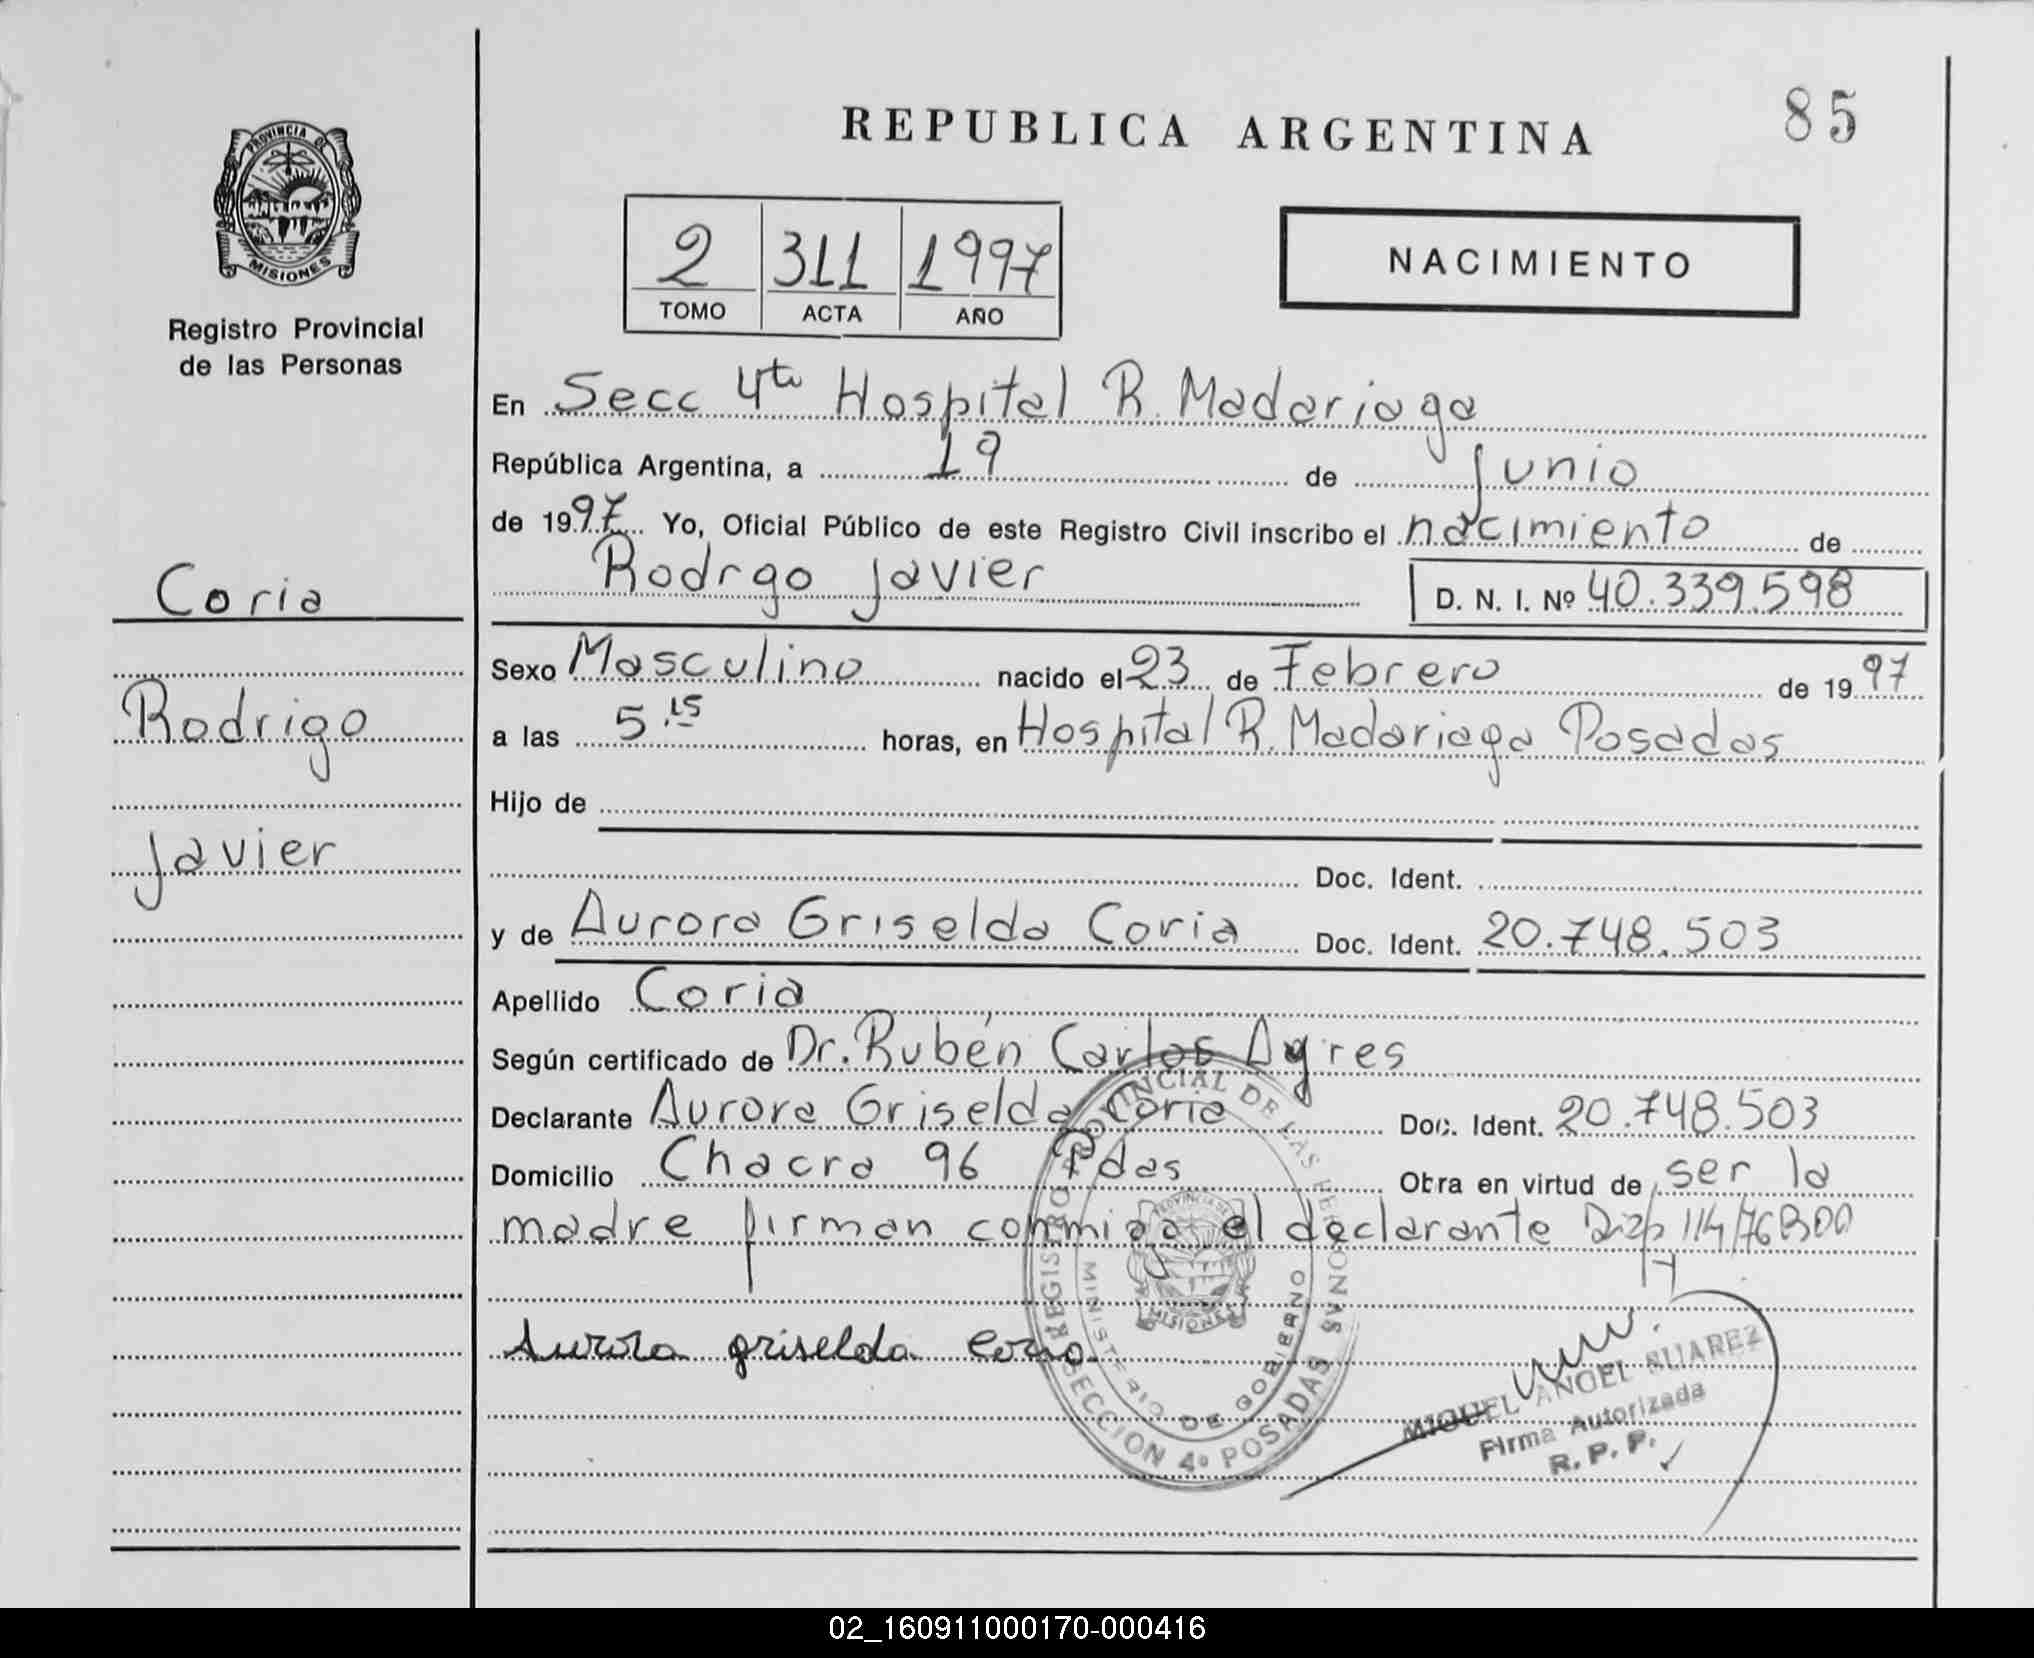 REPUBLICA ARGENTINA
85
PROVINCIA DE
MISIONES
Registro Provincial
de las Personas
2 311 1997
TOMO ACTA AÑO
NACIMIENTO
En Secc 4ta Hospital R. Madariaga
República Argentina, a 19 de Junio
de 1997 Yo, Oficial Público de este Registro Civil inscribo el nacimiento de
Rodrgo Javier D. N. I. Nº 40.339.598
Coria
Rodrigo
Javier
Sexo Masculino nacido el 23 de Febrero de 1997
a las 5.15 horas, en Hospital R. Madariaga Posadas
Hijo de
Doc. Ident.
y de Aurora Griselda Coria Doc. Ident. 20.748.503
Apellido Coria
Según certificado de Dr. Rubén Carlos Ayres
Declarante Aurora Griselda Coria Doc. Ident. 20.748.503
Domicilio Chacra 96 Pdas Obra en virtud de ser la
madre firman conmigo el declarante Disp 114/76
Aurora griselda coria
REGISTRO PROVINCIAL DE LAS PERSONAS
MINISTERIO DE GOBIERNO
SECCION 4º POSADAS
PROVINCIA DE
MISIONES
MIGUEL ANGEL SUAREZ
Firma Autorizada
R. P. P.
02_160911000170-000416